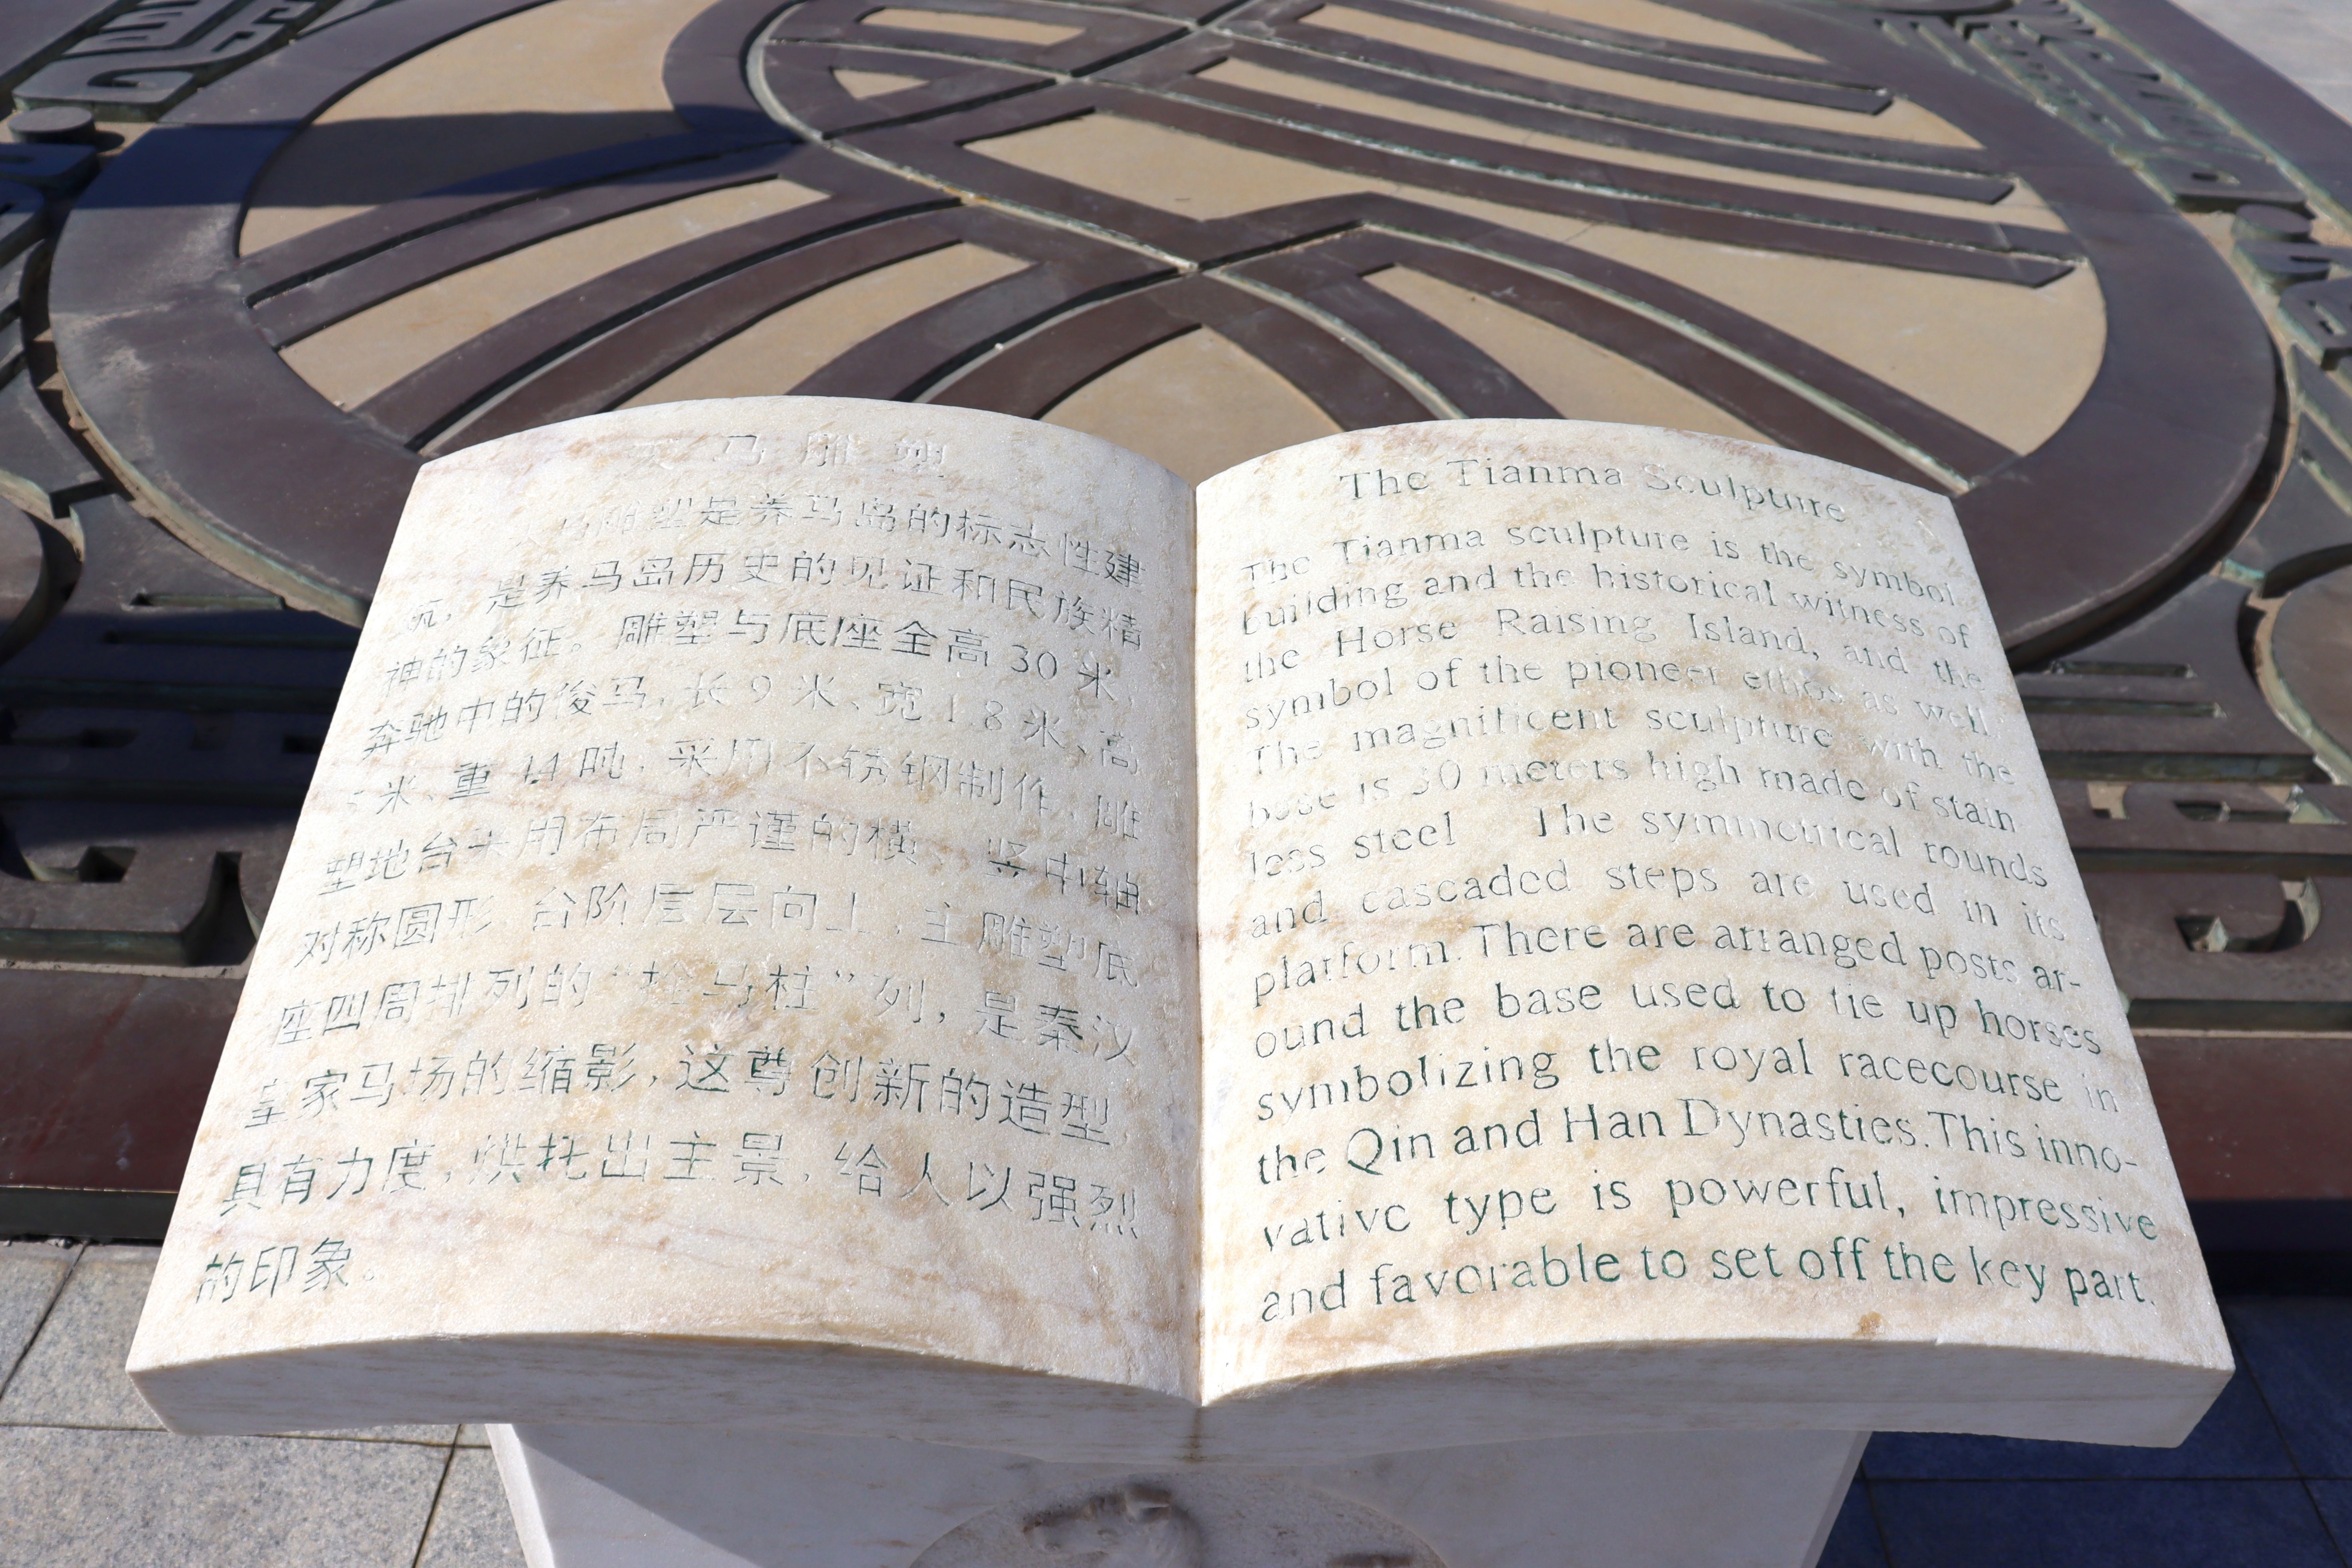 天马雕塑
天马雕塑是养马岛的标志性建
筑，是养马岛历史的见证和民族精
神的象征。雕塑与底座全高30米，
奔驰中的俊马，长9米、宽1.8米、高
5米、重14吨，采用不锈钢制作，雕
塑地台采用布局严谨的横、竖中轴
对称圆形 台阶层层向上，主雕塑底
座四周排列的“拴马柱”列，是秦汉
皇家马场的缩影，这尊创新的造型，
具有力度，烘托出主景，给人以强烈
的印象。
The Tianma Sculpture
The Tianma sculpture is the symbol
building and the historical witness of
the Horse Raising Island, and the
symbol of the pioneer ethos as well.
The magnificent sculpture with the
base is 30 meters high made of stain
less steel The symmetrical rounds
and cascaded steps are used in its
platform. There are arranged posts ar-
ound the base used to tie up horses
symbolizing the royal racecourse in
the Qin and Han Dynasties. This inno-
vative type is powerful, impressive
and favorable to set off the key part.